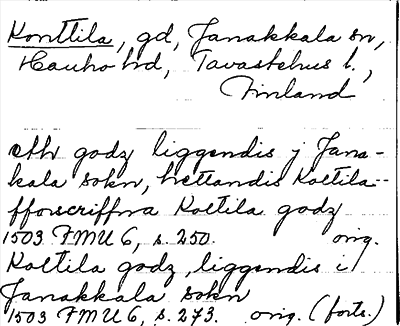 Konttila, gd, Janakkala sn,
Hauho hd, Tavastehus l.,
Finland
ett godz liggendis j Jana-
kala sokn, hettandis Koltila -
fforscriffna Koltila godz
1503 FMU 6, s. 250. orig.
Koltila godz, liggendis i
Janakkala sokn
1503 FMU 6, s. 273. orig. (forts.)